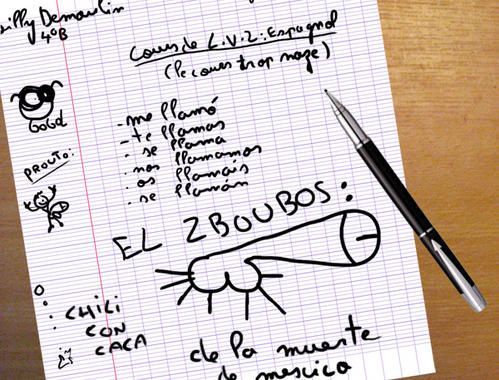 illy Demoulin
4°B
Cours de L.V.2: Espagnol
(le cours trop naze)
GoGol
- me llamó
- te llamas
- se llama
- nos llamamos
- os llamáis
- se llamán
PROUTO:
EL ZBOUBOS:
CHILI
CON
CACA
de la muerte
de mescico